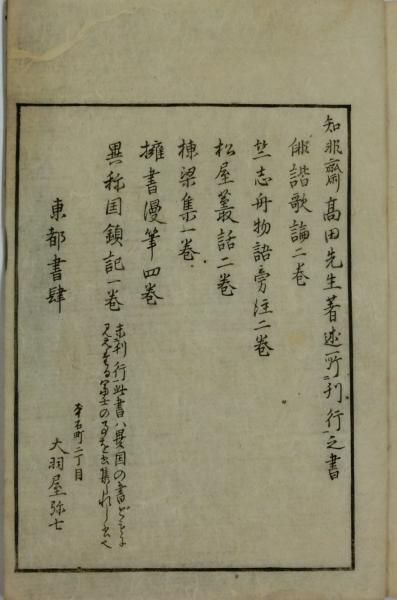 知非齋高田先生著述所刊行之書
俳諧歌論二巻
竺志舟物語旁注二巻
松屋叢話二巻
棟梁集一巻
擁書漫筆四巻
異称国鎮記一巻
未刊行此書ハ異国の書どもに
見えたる冨士の
東都書肆
本石町二丁目
大羽屋弥七